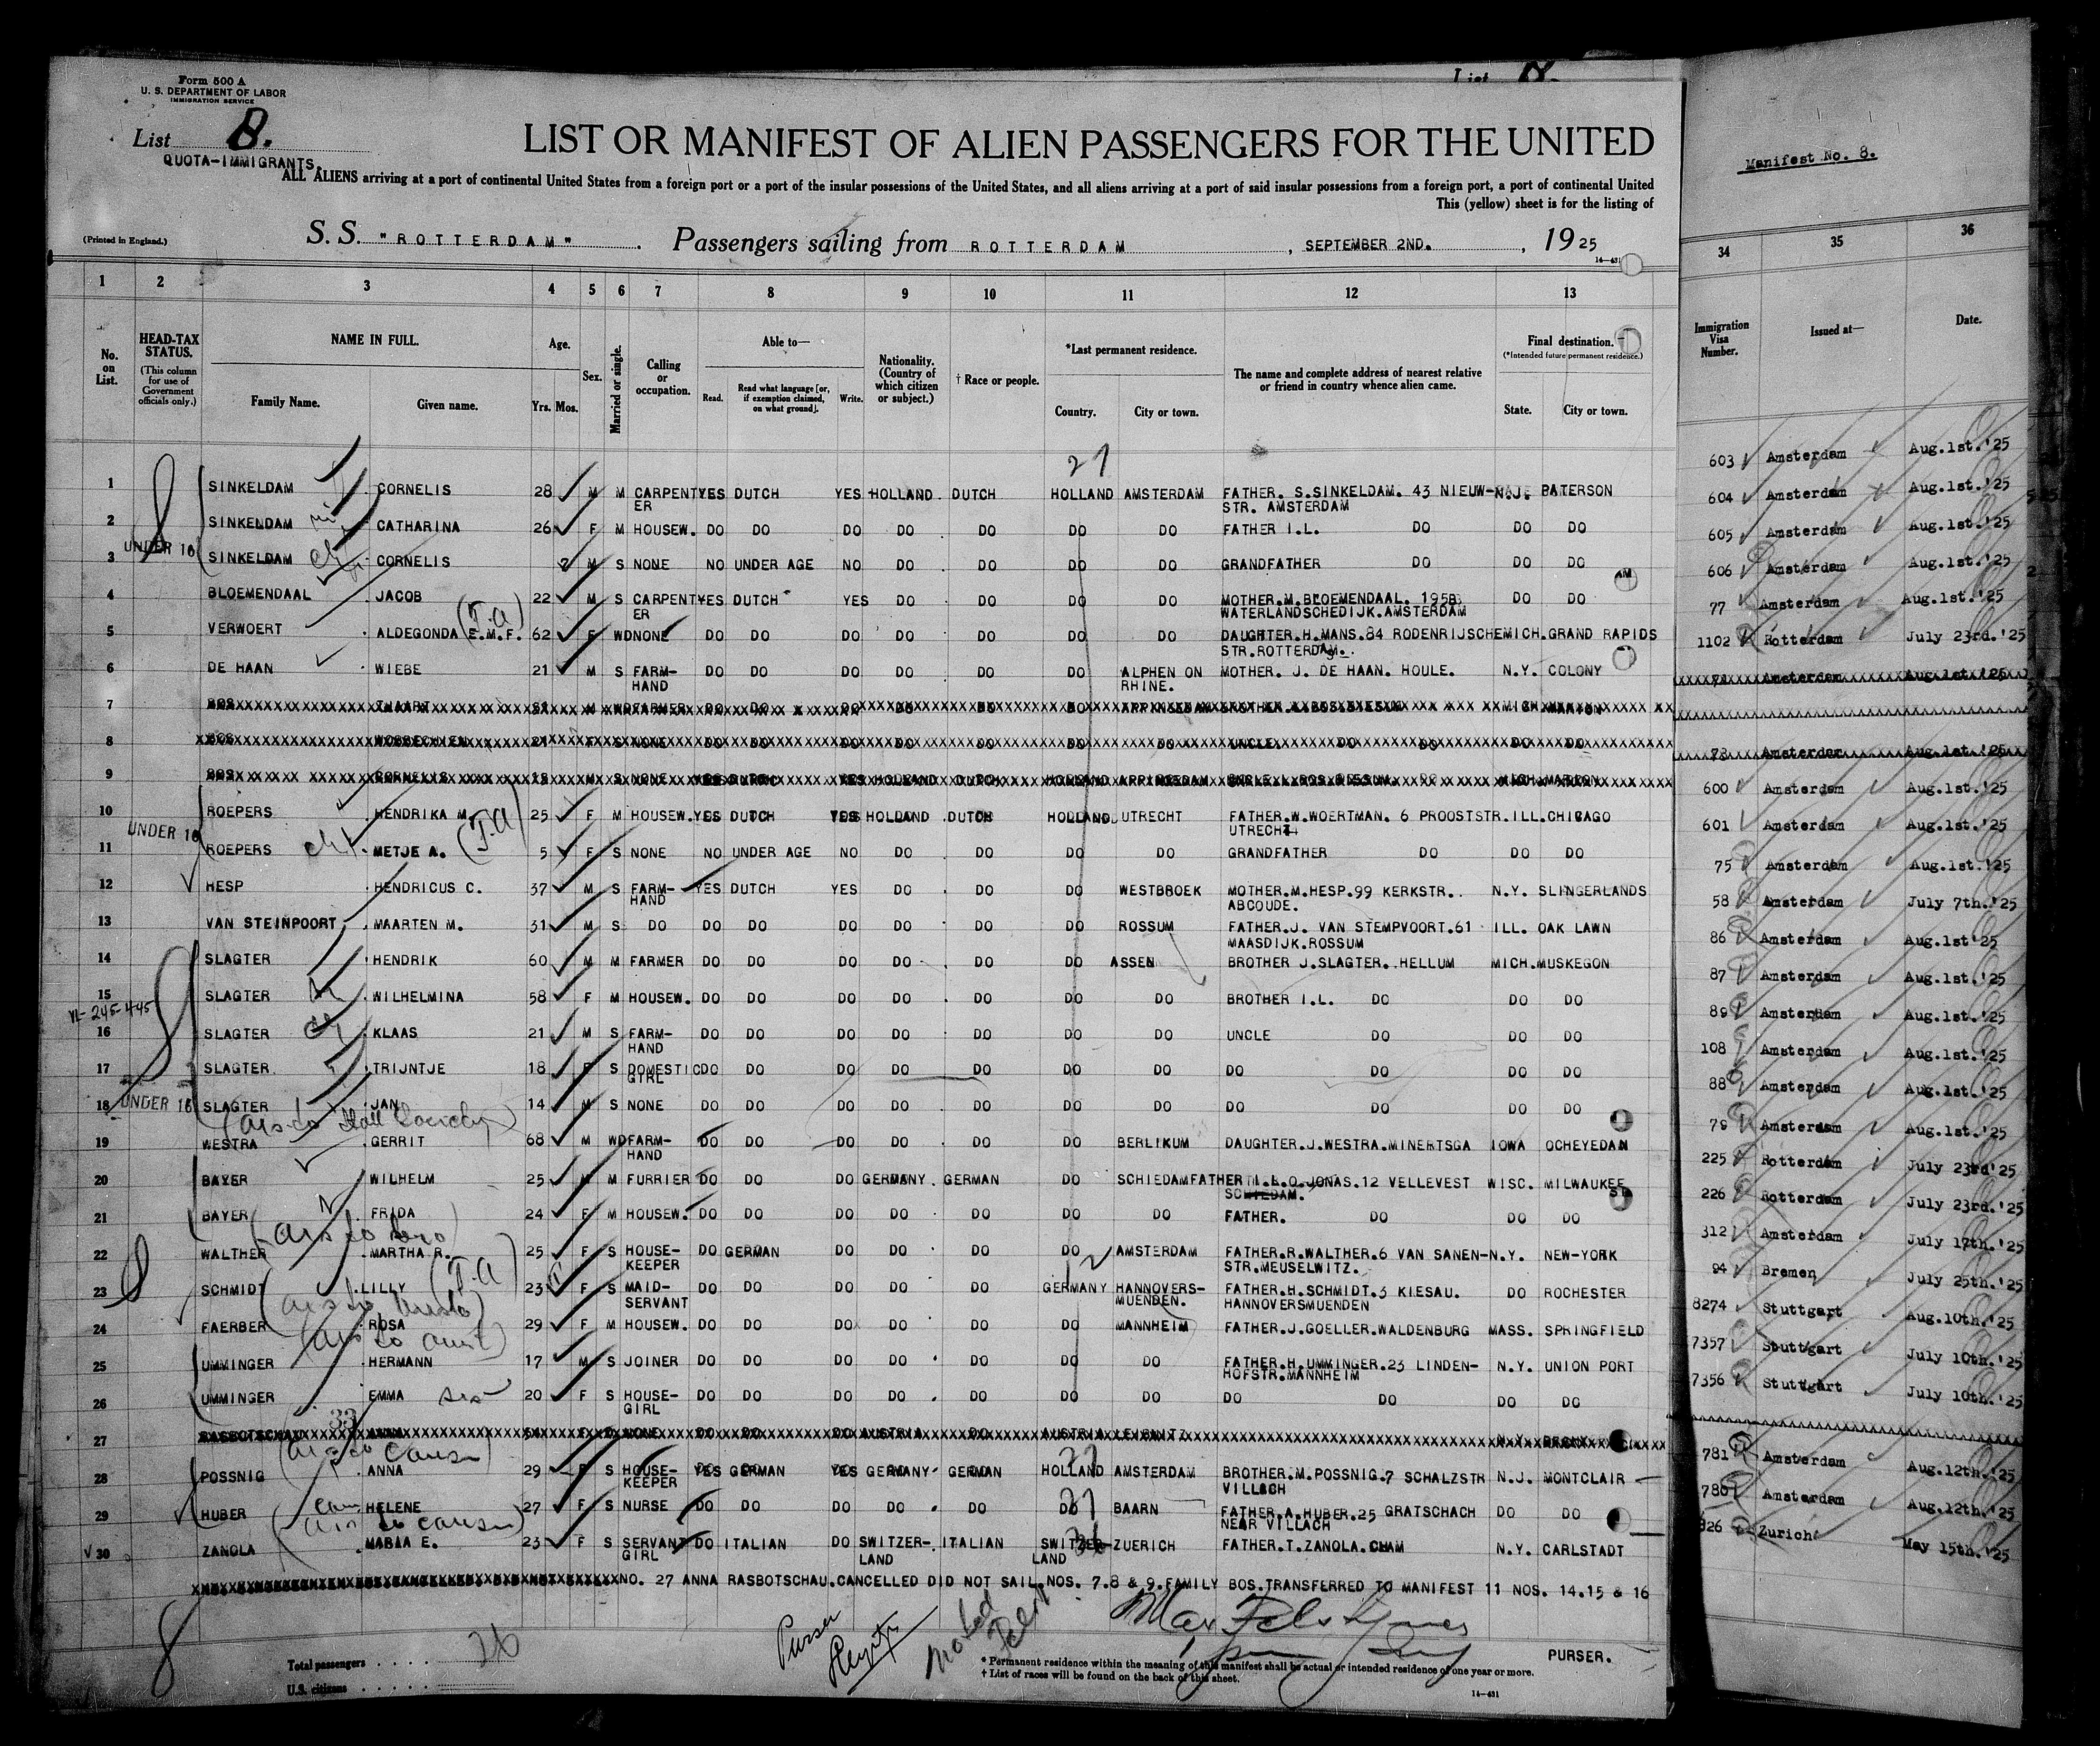 Form 500 A
U. S. DEPARTMENT OF LABOR
IMMIGRATION SERVICE
List 8.
QUOTA-IMMIGRANTS.
LIST OR MANIFEST OF ALIEN PASSENGERS FOR THE UNITED
ALL ALIENS arriving at a port of continental United States from a foreign port or a port of the insular possessions of the United States, and all aliens arriving at a port of said insular possessions from a foreign port, a port of continental United
This (yellow) sheet is for the listing of
(Printed in England.)
S. S. "ROTTERDAM" . Passengers sailing from ROTTERDAM , SEPTEMBER 2ND. , 1925
14-431
1 2 3 4 5 6 7 8 9 10 11 12 13
No. on List.
HEAD-TAX STATUS.
(This column for use of Government officials only.)
NAME IN FULL.
Family Name. Given name.
Age.
Yrs. Mos.
Sex.
Married or single.
Calling or occupation.
Able to—
Read. Read what language [or, if exemption claimed, on what ground]. Write.
Nationality. (Country of which citizen or subject.)
† Race or people.
*Last permanent residence.
Country. City or town.
The name and complete address of nearest relative or friend in country whence alien came.
Final destination.
(*Intended future permanent residence.)
State. City or town.
27
1 SINKELDAM CORNELIS 28 M M CARPENTER YES DUTCH YES HOLLAND DUTCH HOLLAND AMSTERDAM FATHER. S.SINKELDAM. 43 NIEUW- N.J. PATERSON
STR. AMSTERDAM
2 SINKELDAM CATHARINA 26 F M HOUSEW. DO DO DO DO DO DO DO FATHER I.L. DO DO DO
UNDER 16
3 SINKELDAM CORNELIS 2 M S NONE NO UNDER AGE NO DO DO DO DO GRANDFATHER DO DO DO
4 BLOEMENDAAL JACOB 22 M S CARPENTER YES DUTCH YES DO DO DO DO MOTHER.M.BLOEMENDAAL. 195B DO DO
WATERLANDSCHEDIJK.AMSTERDAM
(T.A)
5 VERWOERT ALDEGONDA E.M.F. 62 F WD NONE DO DO DO DO DO DO DO DAUGHTER.H.MANS.84 RODENRIJSCHE MICH.GRAND RAPIDS
STR.ROTTERDAM.
6 DE HAAN WIEBE 21 M S FARM-HAND DO DO DO DO DO DO ALPHEN ON RHINE. MOTHER. J. DE HAAN. HOULE. N.Y. COLONY
7 BOS
8 BOS
9 BOS CORNELIS
10 ROEPERS HENDRIKA M. 25 F M HOUSEW. YES DUTCH YES HOLLAND DUTCH HOLLAND UTRECHT FATHER.W.WOERTMAN. 6 PROOSTSTR. ILL.CHICAGO
UTRECHT
UNDER 16
(T.A)
11 ROEPERS METJE A. 5 F S NONE NO UNDER AGE NO DO DO DO DO GRANDFATHER DO DO DO
12 HESP HENDRICUS C. 37 M S FARM-HAND YES DUTCH YES DO DO DO WESTBROEK MOTHER.M.HESP.99 KERKSTR. N.Y. SLINGERLANDS
ABCOUDE.
13 VAN STEINPOORT MAARTEN M. 31 M S DO DO DO DO DO DO DO ROSSUM FATHER.J. VAN STEMPVOORT.61 ILL. OAK LAWN
MAASDIJK.ROSSUM
14 SLAGTER HENDRIK 60 M M FARMER DO DO DO DO DO DO ASSEN BROTHER J.SLAGTER. HELLUM MICH.MUSKEGON
15 SLAGTER WILHELMINA 58 F M HOUSEW. DO DO DO DO DO DO DO BROTHER I.L. DO DO DO
16 SLAGTER KLAAS 21 M S FARM-HAND DO DO DO DO DO DO DO UNCLE DO DO DO
17 SLAGTER TRIJNTJE 18 F S DOMESTIC GIRL DO DO DO DO DO DO DO DO DO DO DO
UNDER 16
18 SLAGTER JAN 14 M S NONE DO DO DO DO DO DO DO DO DO DO DO
19 WESTRA GERRIT 68 M WD FARM-HAND DO DO DO DO DO DO BERLIKUM DAUGHTER.J.WESTRA.MINERTSGA IOWA OCHEYEDAN
20 BAYER WILHELM 25 M M FURRIER DO DO DO GERMANY GERMAN DO SCHIEDAM FATHER I.L.O.JONAS.12 VELLEVEST WISC. MILWAUKEE
SCHIEDAM.
21 BAYER FRIDA 24 F M HOUSEW. DO DO DO DO DO DO DO FATHER. DO DO DO
22 WALTHER MARTHA R. 25 F S HOUSE-KEEPER DO GERMAN DO DO DO DO AMSTERDAM FATHER.R.WALTHER.6 VAN SANEN- N.Y. NEW-YORK
STR.MEUSELWITZ.
(T.A)
23 SCHMIDT LILLY 23 F S MAID-SERVANT DO DO DO DO DO GERMANY HANNOVERS-MUENDEN. FATHER.H.SCHMIDT.3 KIESAU. DO ROCHESTER
HANNOVERSMUENDEN
24 FAERBER ROSA 29 F M HOUSEW. DO DO DO DO DO DO MANNHEIM FATHER.J.GOELLER.WALDENBURG MASS. SPRINGFIELD
25 UMMINGER HERMANN 17 M S JOINER DO DO DO DO DO DO DO FATHER.H.UMMINGER.23 LINDEN- N.Y. UNION PORT
HOFSTR.MANNHEIM
26 UMMINGER EMMA 20 F S HOUSE-GIRL DO DO DO DO DO DO DO DO DO DO DO
33
27 RASBOTSCHAU ANNA
28 POSSNIG ANNA 29 F S HOUSE-KEEPER YES GERMAN YES GERMANY GERMAN HOLLAND AMSTERDAM BROTHER.M.POSSNIG.7 SCHALZSTR N.J. MONTCLAIR
VILLACH
29 HUBER HELENE 27 F S NURSE DO DO DO DO DO DO BAARN FATHER.A.HUBER.25 GRATSCHACH DO DO
NEAR VILLACH
30 ZANOLA MARIA E. 23 F S SERVANT GIRL DO ITALIAN DO SWITZER-LAND ITALIAN SWITZER-LAND ZUERICH FATHER.T.ZANOLA.CHAM N.Y. CARLSTADT
NO. 27 ANNA RASBOTSCHAU.CANCELLED DID NOT SAIL.NOS. 7.8 & 9.FAMILY BOS.TRANSFERRED TO MANIFEST 11 NOS. 14.15 & 16
Purser
PURSER.
Total passengers . . . . 26
U.S. citizens . . . . .
* Permanent residence within the meaning of this manifest shall be actual or intended residence of one year or more.
† List of races will be found on the back of this sheet.
14-431
Manifest No. 8.
34 35 36
Immigration Visa Number. Issued at— Date.
603 Amsterdam Aug.1st.'25
604 Amsterdam Aug.1st.'25
605 Amsterdam Aug.1st.'25
606 Amsterdam Aug.1st.'25
77 Amsterdam Aug.1st.'25
1102 Rotterdam July 23rd.'25
74 Amsterdam Aug.1st.'25
73 Amsterdam Aug.1st.'25
600 Amsterdam Aug.1st.'25
601 Amsterdam Aug.1st.'25
75 Amsterdam Aug.1st.'25
58 Amsterdam July 7th.'25
86 Amsterdam Aug.1st'25
87 Amsterdam Aug.1st.'25
89 Amsterdam Aug.1st.'25
108 Amsterdam Aug.1st.'25
88 Amsterdam Aug.1st.'25
79 Amsterdam Aug.1st.'25
225 Rotterdam July 23rd'25
226 Rotterdam July 23rd.'25
312 Amsterdam July 17th.'25
94 Bremen July 25th.'25
8274 Stuttgart Aug.10th.'25
7357 Stuttgart July 10th.'25
7356 Stuttgart July 10th.'25
781 Amsterdam Aug.12th.'25
780 Amsterdam Aug.12th.'25
826 Zurich May 15th.'25